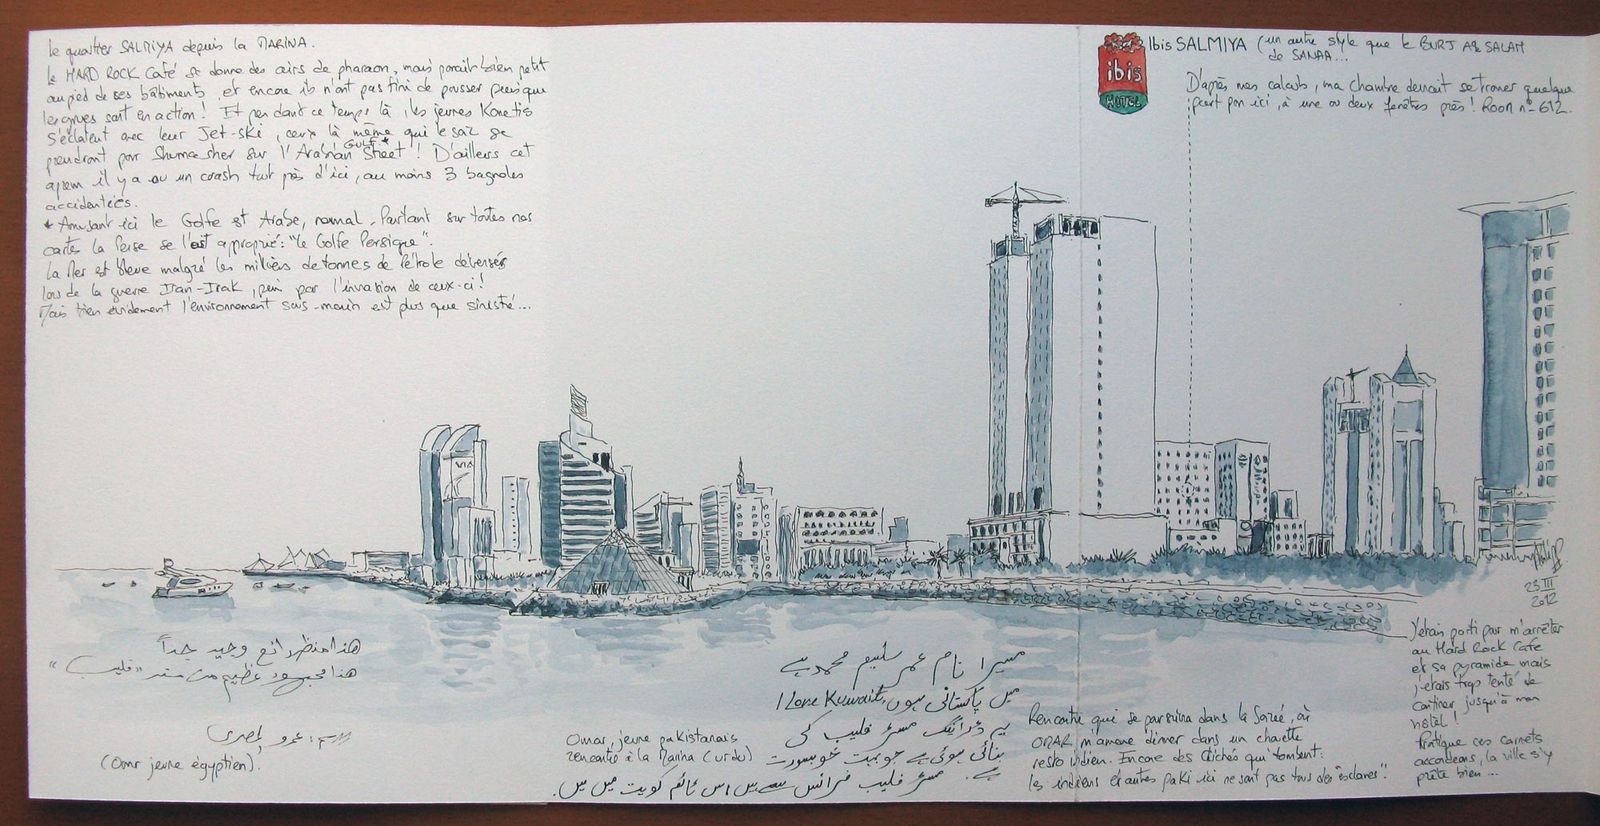 le quartier SALMIYA depuis la MARINA.
Le HARD ROCK Café se donne des airs de pharaon, mais paraît bien petit
au pied de ses bâtiments, et encore ils n'ont pas fini de pousser puisque
les grues sont en action! Et pendant ce temps là, les jeunes Koweitis
s'éclatent avec leur Jet-ski, ceux là même qui le soir se
prendront pour Shumacher sur l'Arabian GULF * Street! D'ailleurs cet
aprem il y a eu un crash tout près d'ici, au moins 3 bagnoles
accidentées.
* Amusant ici le Golfe est Arabe, normal. Partant sur toutes nos
cartes la Perse se l'est approprié: "le Golfe Persique".
La Mer est bleue malgré les milliers de tonnes de Pétrole déversés
lors de la guerre Iran-Irak, puis par l'invasion de ceux-ci!
Mais bien évidement l'environnement sous-marin est plus que sinistré...
ibis
HOTEL
Ibis SALMIYA (un autre style que le BURJ AL SALAM
de SANAA...
D'après mes calculs, ma chambre devrait se trouver quelque
part par ici, à une ou deux fenêtres près! Room n° 612.
23 III
2012
هذا منظر رائع وحيد جداً
هذا مجهود عظيم من مستر "فليب"
عمرو المصري
(Omr jeune égyptien).
Omar, jeune pakistanais
rencontré à la Marina (urdu)
میرا نام عمر سلیم محمد ہے
میں پاکستانی ہوں، I Love Kuwait
یہ ڈرائنگ مسٹر فلیپ کی
بنائی ہوئی ہے جو بہت خوبصورت
ہے۔
مسٹر فلیپ فرانس سے ہیں اس ٹائم کویت میں ہیں۔
Rencontre qui se poursuivra dans la Soirée, où
OMAR m'amène dîner dans un chouette
resto Indien. Encore des clichés qui tombent:
les indiens et autres paki ici ne sont pas tous des "esclaves".
J'étais parti pour m'arrêter
au Hard Rock Café
et sa pyramide mais
j'étais trop tenté de
continer jusqu'à mon
hôtel!
Pratique ces carnets
accordéons, la ville s'y
prête bien...